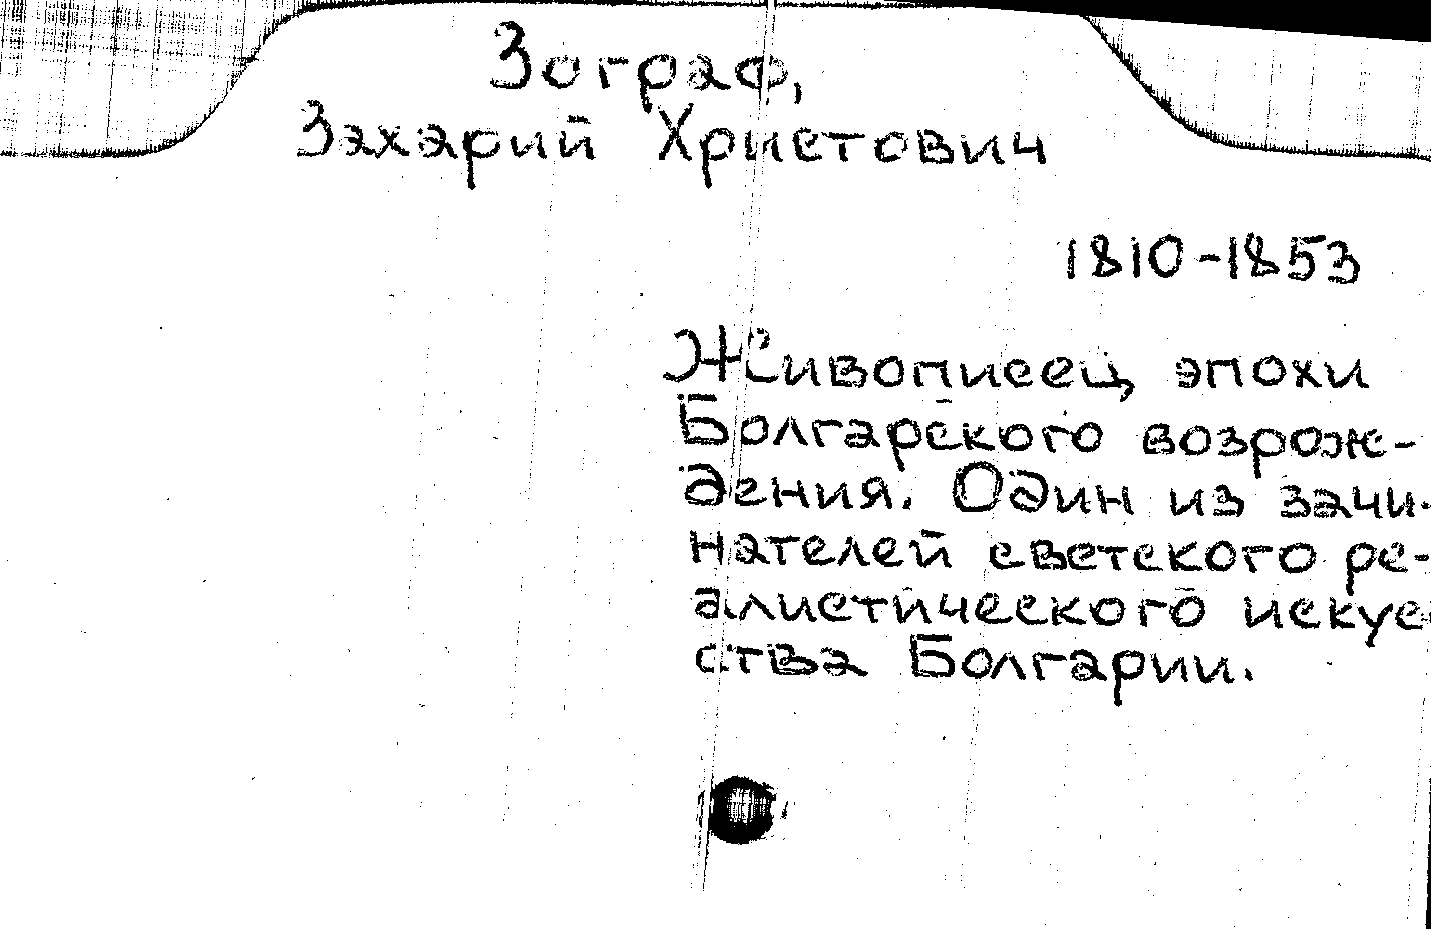 Зограф,
Захарий Христович
1810-1853
Живописец эпохи
Болгарского возрож-
дения. Один из зачи-
нателей светского ре-
алистического искус
ства Болгарии.